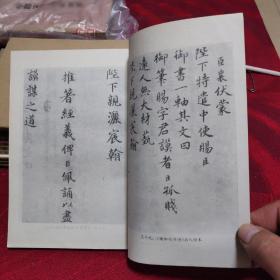 臣襄伏蒙
陛下特遣中使賜臣
御書一軸其文曰
御筆賜字君謨者臣孤賤
遠人無大材藝
陛下親灑宸翰
推著經義俾臣佩誦以盡
謨謀之道